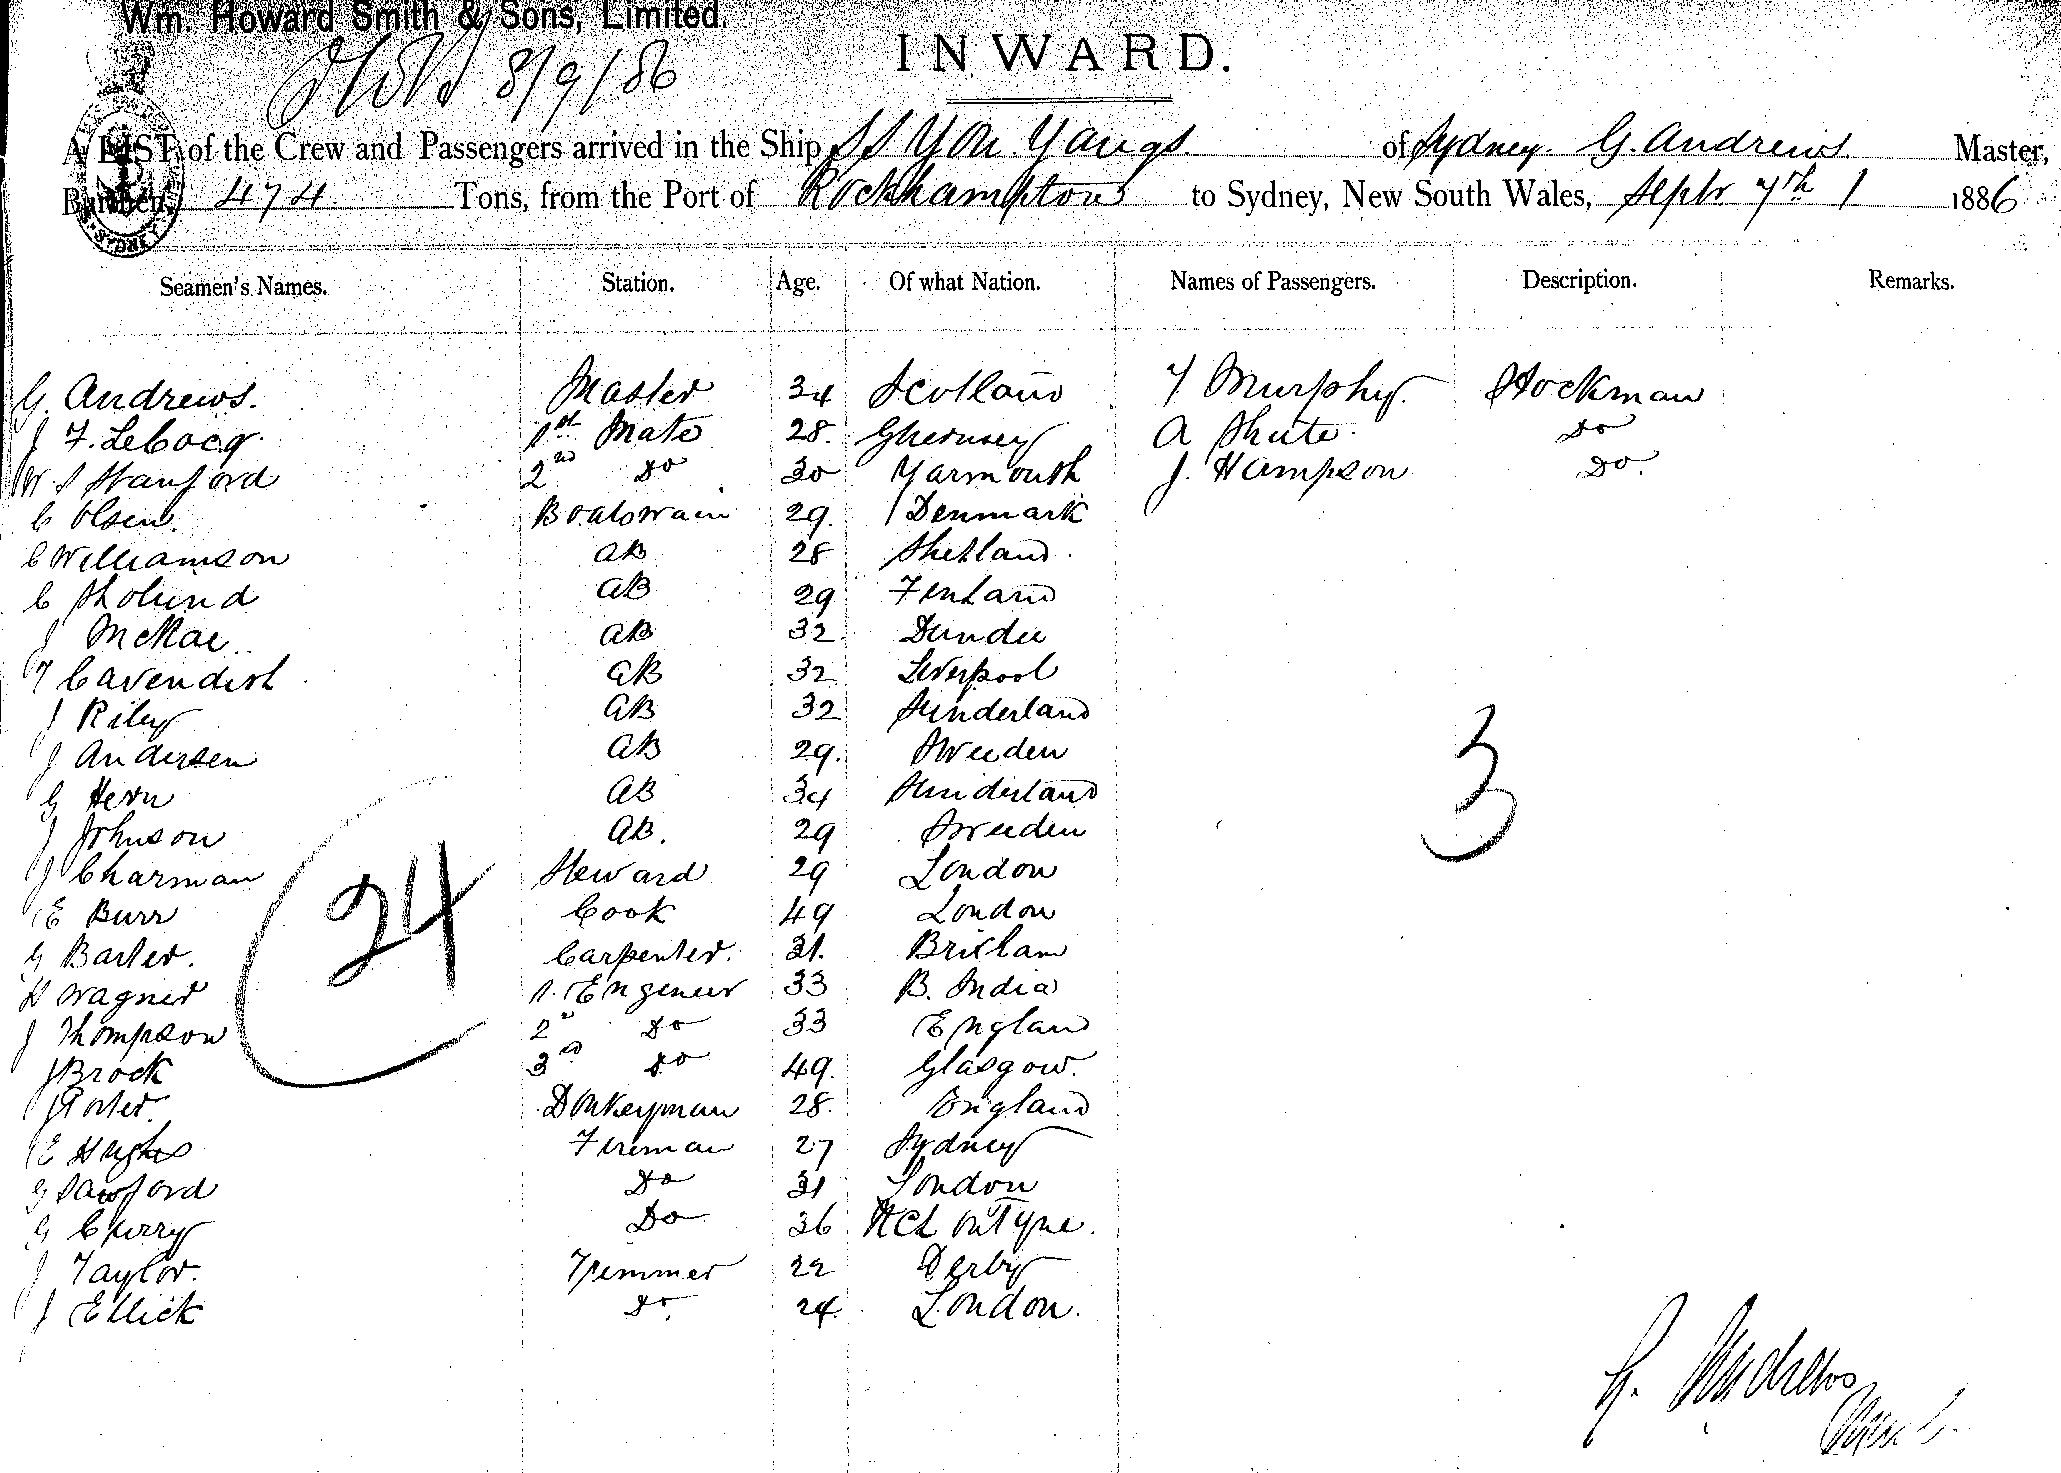 Wm. Howard Smith & Sons, Limited.
8/9/86
INWARD.
A LIST of the Crew and Passengers arrived in the Ship SS You Yangs of Sydney G. Andrews Master,
Burthen, 474 Tons, from the Port of Rockhampton to Sydney, New South Wales, Septr 7th 1886
Seamen's Names. Station. Age. Of what Nation. Names of Passengers. Description. Remarks.
G. Andrews. Master 34 Scotland T Murphy. Stockman
J F. LeCocq. 1st Mate 28. Guernsey A Shute. Do
W S Stanford 2nd Do 30 Yarmouth J. Hampson Do.
C Olsen. Boatswain 29. Denmark
C Williamson AB 28 Shetland.
C AB 29 Finland
J McRae AB 32 Dundee
T Cavendish AB 32 Liverpool
J Riley AB 32 Sunderland
J Andersen AB 29. Sweeden
G Hern AB 34 Sunderland
J Johnson AB. 29 Sweeden
J Charman Steward 29 London
E Burr Cook 49 London
G Barter. Carpenter. 31. Brixham
H Wagner 1. Engeneer 33 B. India
J Thompson 2" Do 33 England
J Brock 3rd Do 49. Glasgow.
J Porter. Donkeyman 28. England
E Hughes Fireman 27 Sydney
G Sawford Do 31 London
G Curry Do 36 NCL on Tyne.
J Taylor. Trimmer 22 Derby
J Ellick Do. 24. London.
24
3
G. Andrews